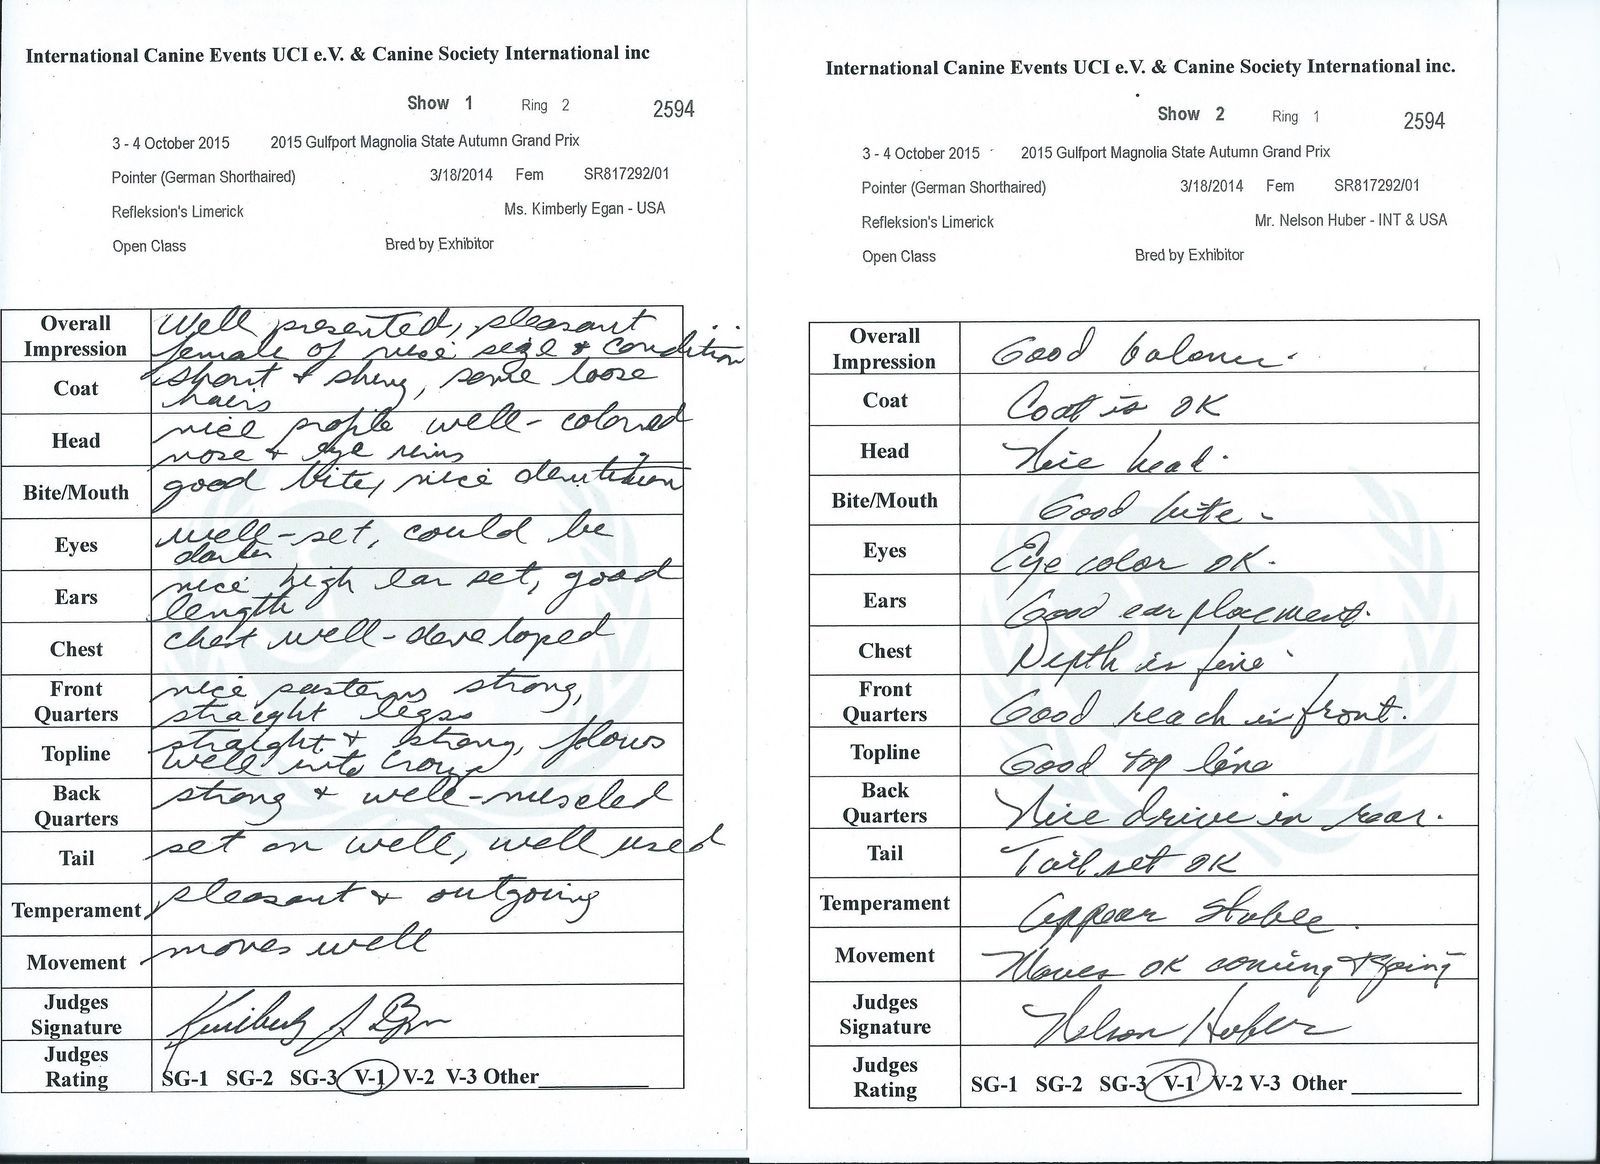 International Canine Events UCI e.V. & Canine Society International inc
Show 1 Ring 2 2594
3 - 4 October 2015 2015 Gulfport Magnolia State Autumn Grand Prix
Pointer (German Shorthaired) 3/18/2014 Fem SR817292/01
Refleksion's Limerick Ms. Kimberly Egan - USA
Open Class Bred by Exhibitor
Overall Impression Well presented, pleasant
female of nice size & condition
Coat short & shiny, some loose
hairs
Head nice profile well-colored
nose & eye rims
Bite/Mouth good bite, nice dentition
Eyes well-set, could be
darker
Ears nice high ear set, good
length
Chest chest well-developed
Front Quarters nice pasterns strong,
straight legs
Topline straight & strong, flows
well into croup
Back Quarters strong & well-muscled
Tail set on well, well used
Temperament pleasant & outgoing
Movement moves well
Judges Signature Kimberly
Judges Rating SG-1 SG-2 SG-3 V-1 V-2 V-3 Other
International Canine Events UCI e.V. & Canine Society International inc.
Show 2 Ring 1 2594
3 - 4 October 2015 2015 Gulfport Magnolia State Autumn Grand Prix
Pointer (German Shorthaired) 3/18/2014 Fem SR817292/01
Refleksion's Limerick Mr. Nelson Huber - INT & USA
Open Class Bred by Exhibitor
Overall Impression Good balance.
Coat Coat is OK
Head Nice head.
Bite/Mouth Good bite.
Eyes Eye color OK.
Ears Good ear placement.
Chest Depth is fine.
Front Quarters Good reach in front.
Topline Good top line
Back Quarters Nice drive in rear.
Tail Tail set OK
Temperament Appear Stable.
Movement Moves OK coming & going
Judges Signature Nelson Huber
Judges Rating SG-1 SG-2 SG-3 V-1 V-2 V-3 Other